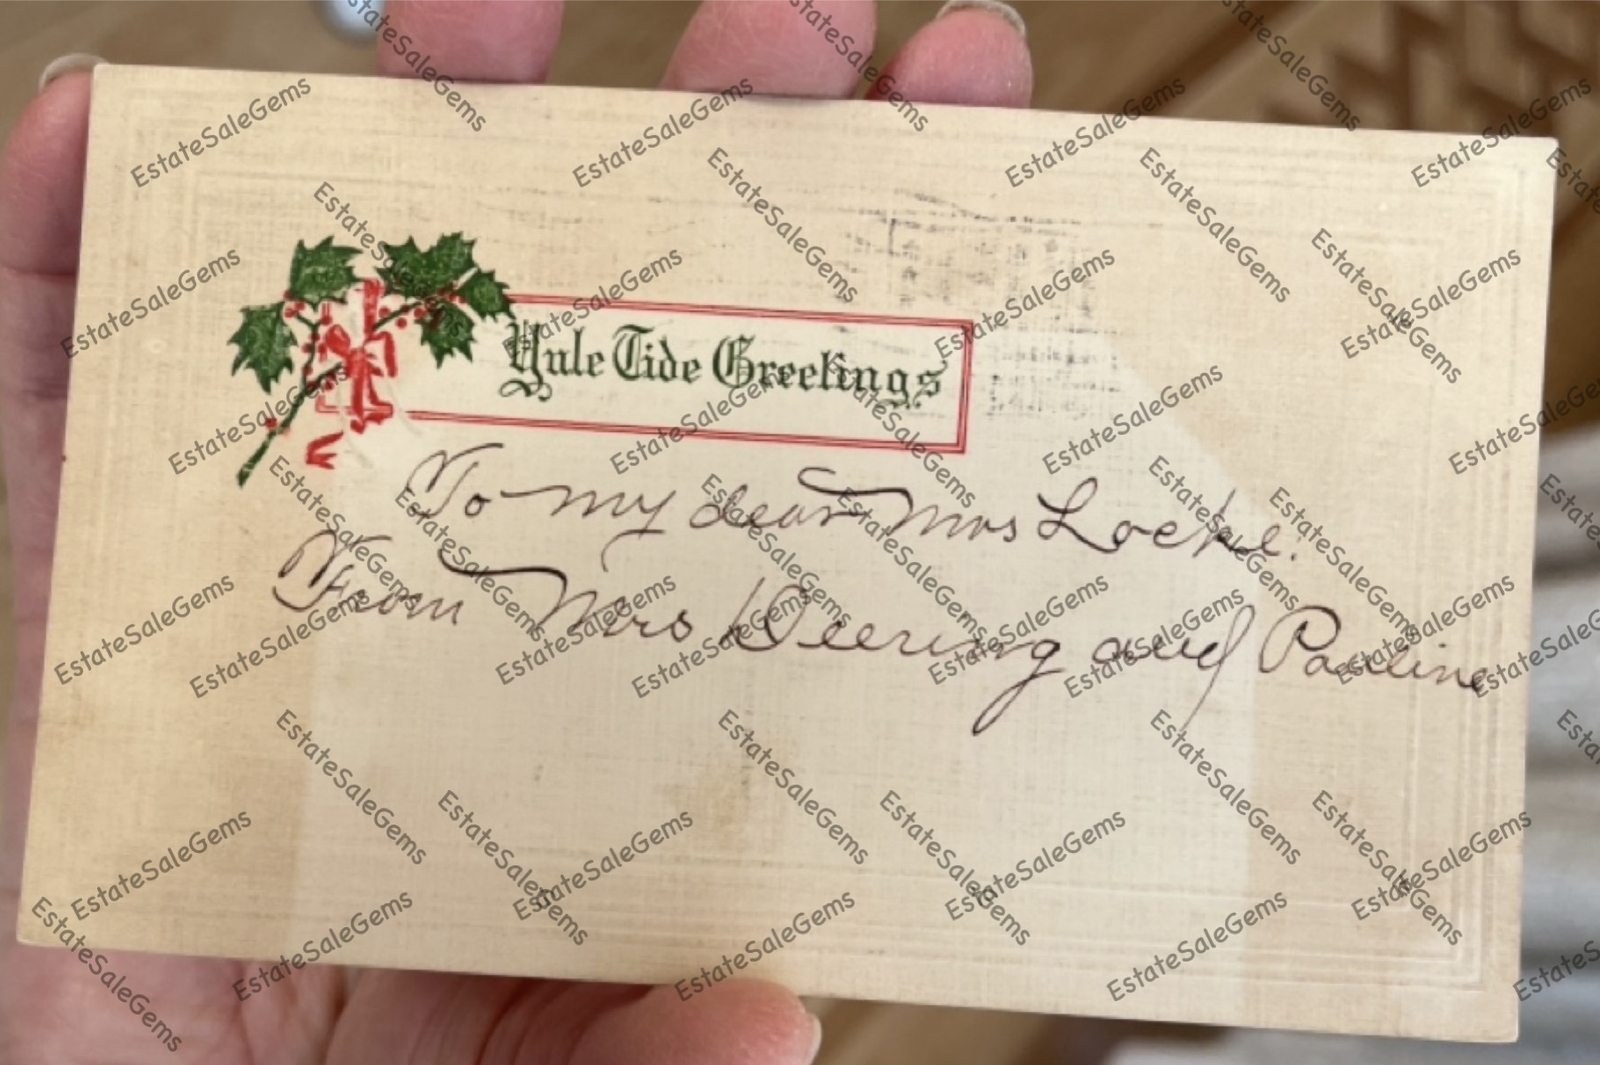 Yule Tide Greetings
To my dear Mrs Locke.
From Mrs Deering and Pauline
EstateSaleGems